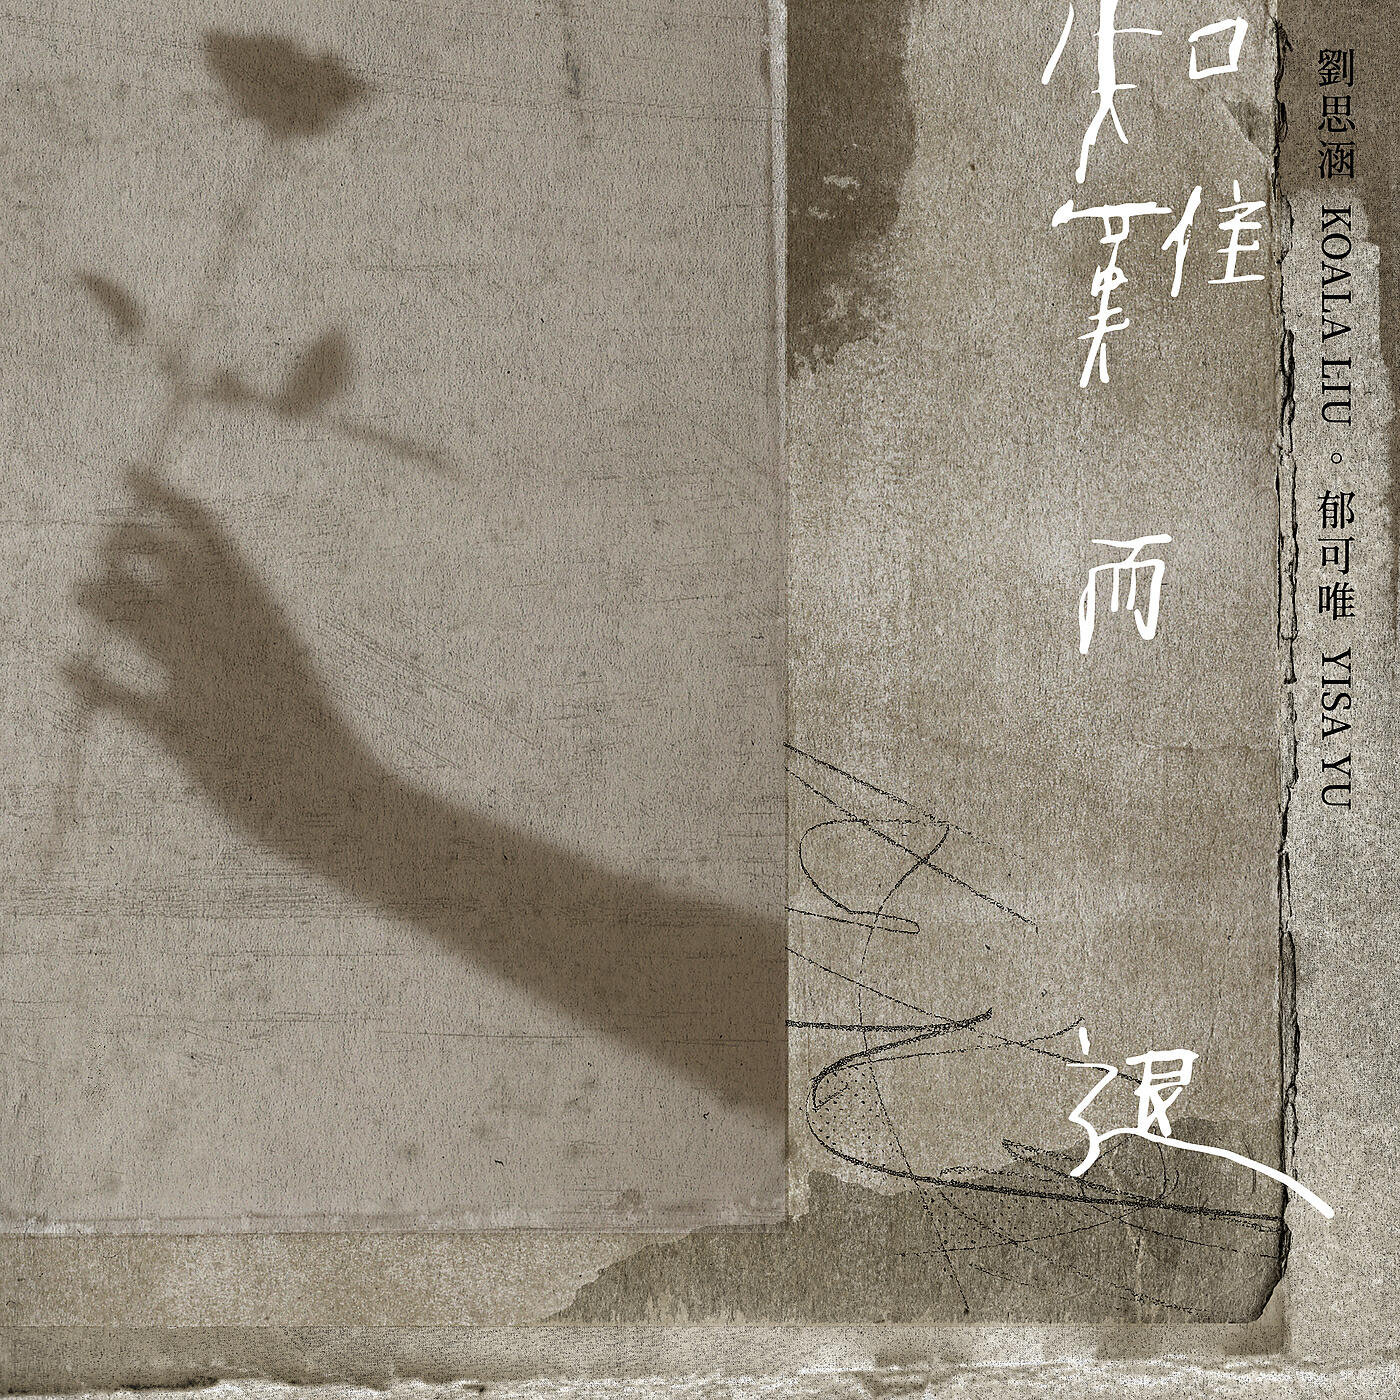 劉思涵 KOALA LIU 。 郁可唯 YISA YU
知難而退